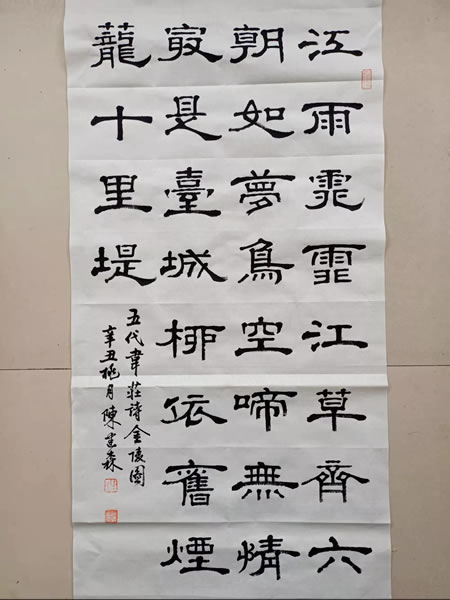 江雨霏霏江草齊六
朝如夢鳥空啼無情
㝡是臺城柳依舊煙
蘢十里堤
五代韋莊诗金陵图
辛丑桃月陳建森